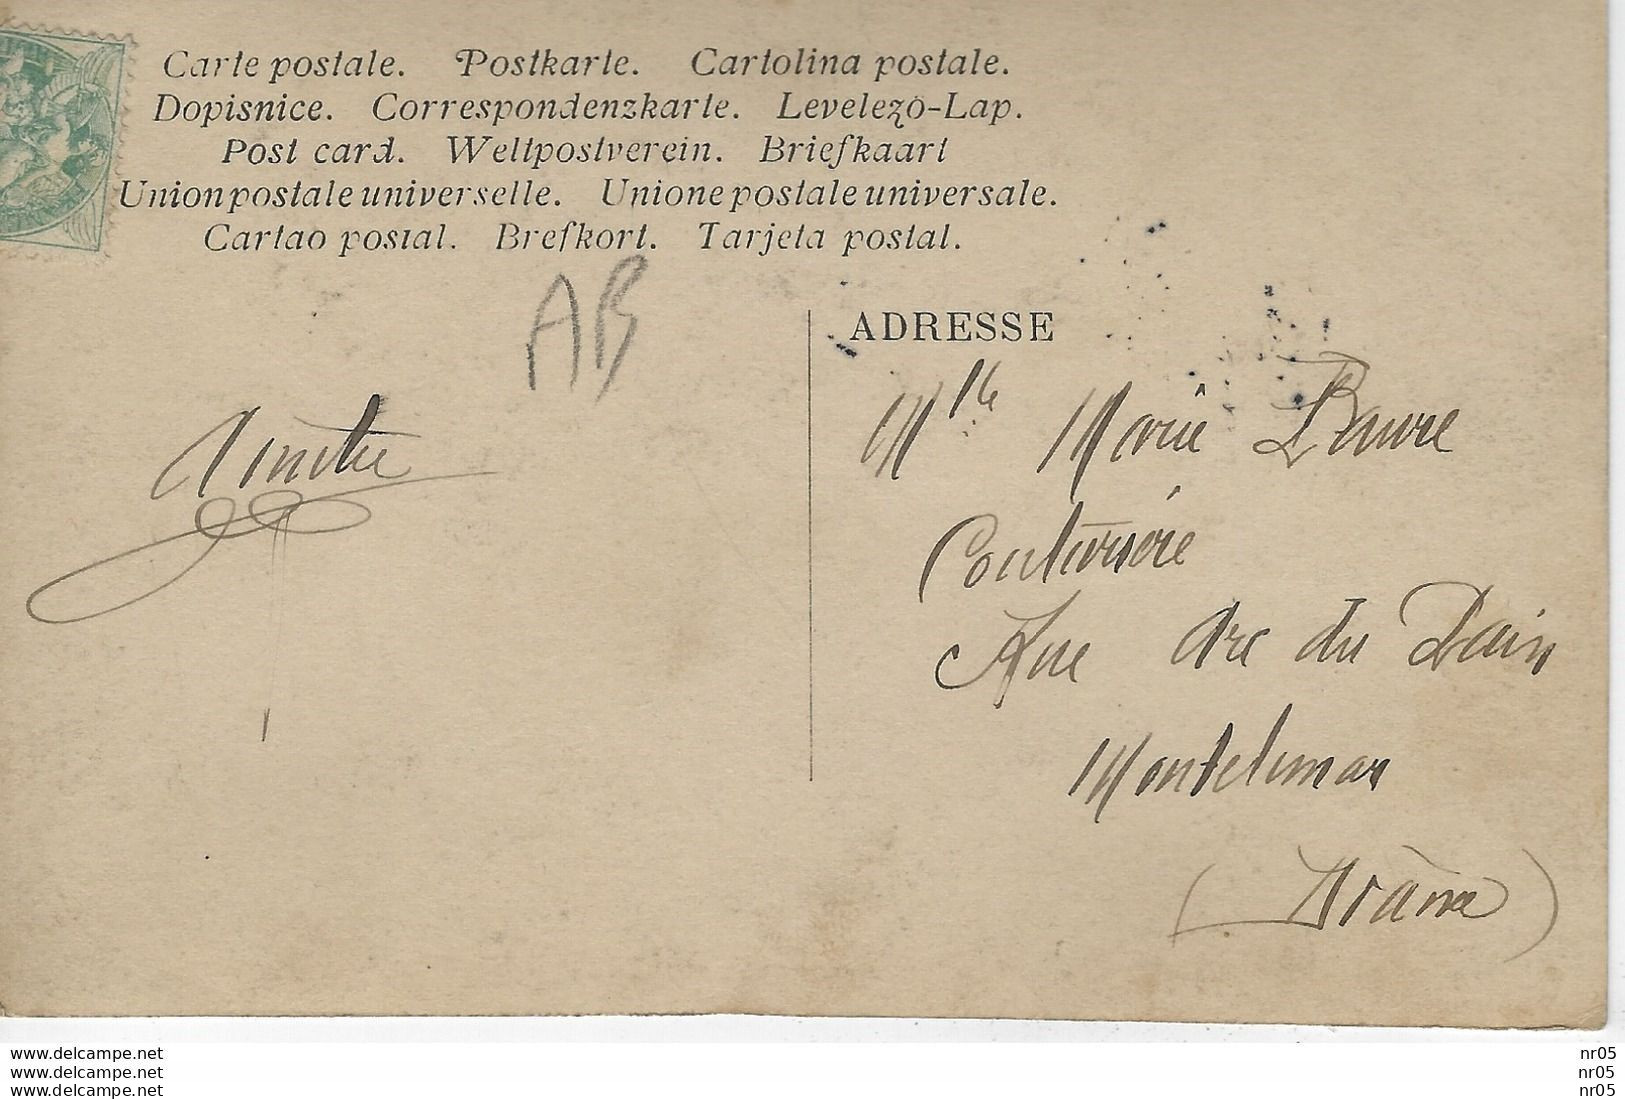 Carte postale. Postkarte. Cartolina postale.
Dopisnice. Correspondenzkarte. Levelezö-Lap.
Post card. Weltpostverein. Briefkaart
Union postale universelle. Unione postale universale.
Cartao postal. Brefkort. Tarjeta postal.
AB
ADRESSE
Mlle Marie
Couturière
Rue Arc du
Montelimar
(Drôme)
www.delcampe.net
www.delcampe.net
www.delcampe.net
nr05
nr05
nr05